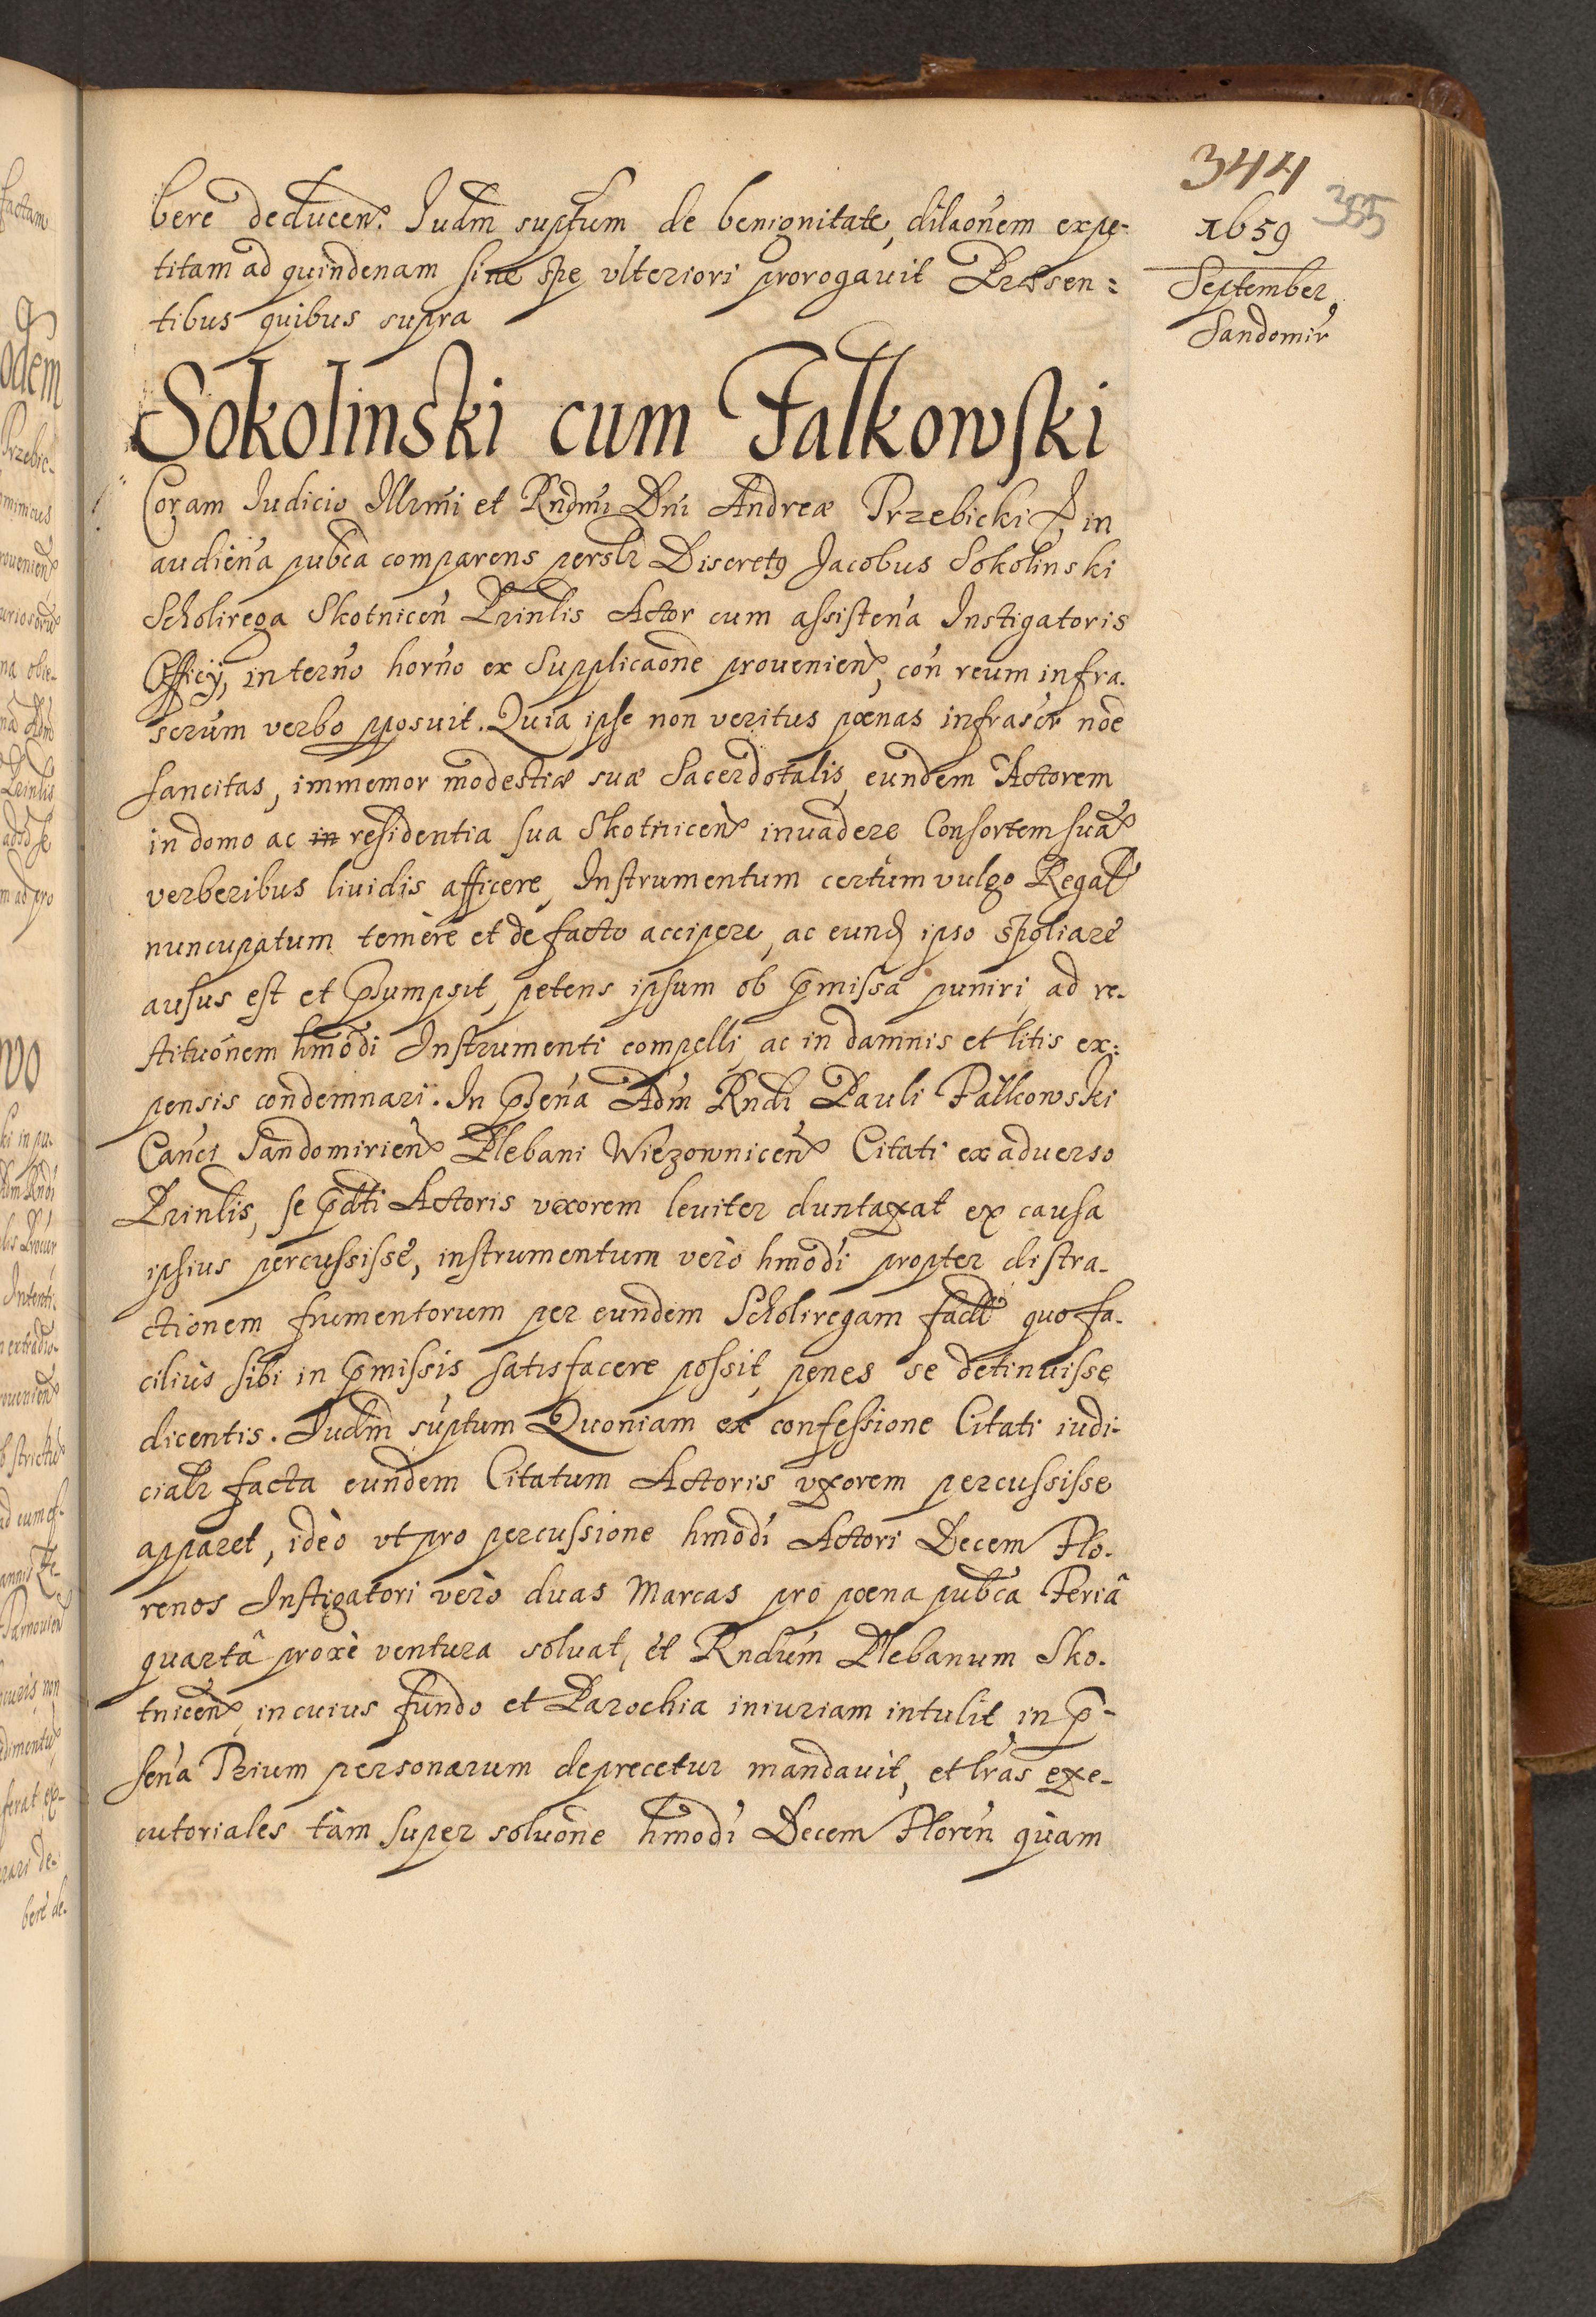 344
355
1659
September
Sandomir
bere deducen. Iudm suptum de benignitate, dilaonem expe-
titam ad quindenam sine spe ulteriori prorogavit Præsen:
tibus quibus supra
Sokolinski cum Falkowski
Coram Iudicio Illrmi et Rndmi Dni Andreæ Przebicki in
audiena pubca comparens personlr Discretus Jacobus Sokolinski
Scholirega Skotnicen Prinlis Actor cum assistena Instigatoris
Officij, in terno horno ex Supplicaone provenien, con reum infra-
scrum verbo pposuit. Quia ipse non veritus pœnas infrascr noe
sancitas, immemor modestiæ suæ Sacerdotalis, eundem Actorem
in domo ac in residentia sua Skotnicen invadere Consortem suã
verberibus lividis afficere, Instrumentum certum vulgo Regał
nuncupatum temere et de facto accipere, ac eund ipso spoliare
ausus est et psumpsit, petens ipsum ob pmissa puniri, ad re-
stituonem hmodi Instrumenti compelli, ac in damnis et litis ex:
pensis condemnari. In psena Adm Rndi Pauli Falkowski
Canci Sandomirien Plebani Wiezownicen Citati ex adverso
Prinlis, se pdti Actoris uxorem leviter duntaxat ex causa
ipsius percussisse, instrumentum verò hmodi propter distra-
ctionem frumentorum per eundem Scholiregam fact quo fa-
cilius sibi in pmissis satisfacere possit, penes se detinuisse
dicentis. Iudm suptum Quoniam ex confessione Citati iudi-
cialr facta eundem Citatum Actoris vxorem percussisse
apparet, ideò vt pro percussione hmodi Actori Decem Flo-
renos Instigatori verò duas Marcas pro pœna pubca Feriâ
quartâ proxe ventura solvat, et Rndum Plebanum Sko-
tnicen, in cuius fundo et Parochia iniuriam intulit, in p-
sena Trium personarum deprecetur mandavit, et lras exe-
cutoriales tàm super soluone hmodi Decem Floren quam